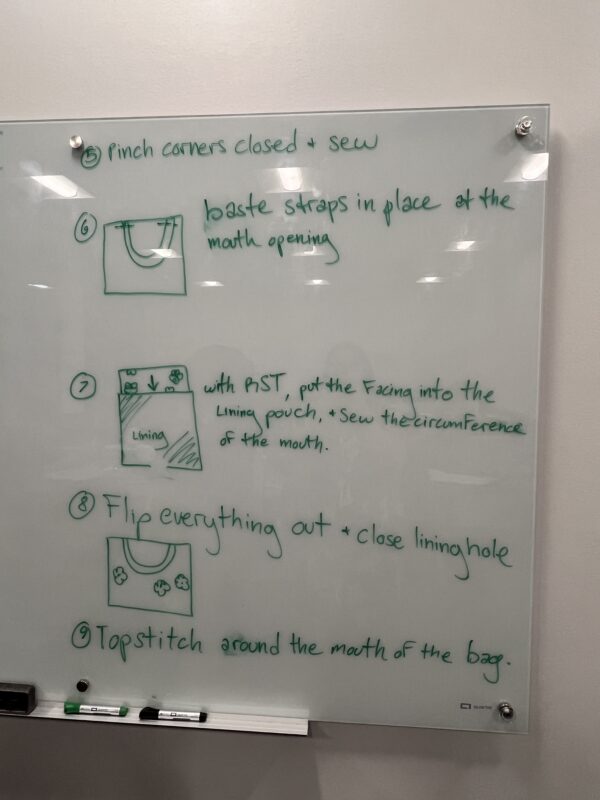 ⑤ Pinch corners closed + sew
⑥ baste straps in place at the
mouth opening
⑦ with RST, put the Facing into the
Lining pouch, + Sew the circumference
of the mouth.
Lining
⑧ Flip everything out + close lining hole
⑨ Topstitch around the mouth of the bag.